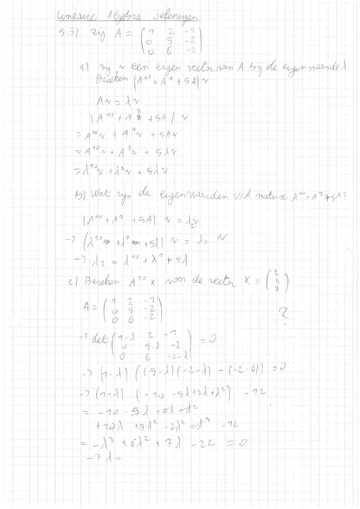 Lineaire Algebra oefeningen
5.5) zij A = (1 2 -1
0 5 -2
0 6 -2)
a) zij v een eigenvector van A bij de eigenwaarde λ
Bereken (A¹⁰ + A⁷ + 5A) v
Av = λv
(A¹⁰ + A⁷ + 5A) v
= A¹⁰v + A⁷v + 5Av
= A¹⁰v + A⁷v + 5λv
= λ¹⁰v + λ⁷v + 5λv
b) Wat zijn de eigenwaarden v/d matrix A¹⁰ + A⁷ + 5A?
(A¹⁰ + A⁷ + 5A) v = λ₂v
→ (λ¹⁰ + λ⁷ + 5λ) v = λ₂ v
→ λ₂ = λ¹⁰ + λ⁷ + 5λ
c) Bereken A¹⁰ x voor de vector X = (2
4
7)
A = (1 2 -1
0 5 -2
0 6 -2) ?
→ det (1-λ 2 -1
0 5-λ -2
0 6 -2-λ) = 0
→ (1-λ) ((5-λ)(-2-λ) - (-2·6)) = 0
→ (1-λ) (-10 -5λ+2λ+λ²) - 12
= -10 -5λ +2λ +λ²
= -λ³ + 6λ² + 7λ - 22 = 0
→ λ =